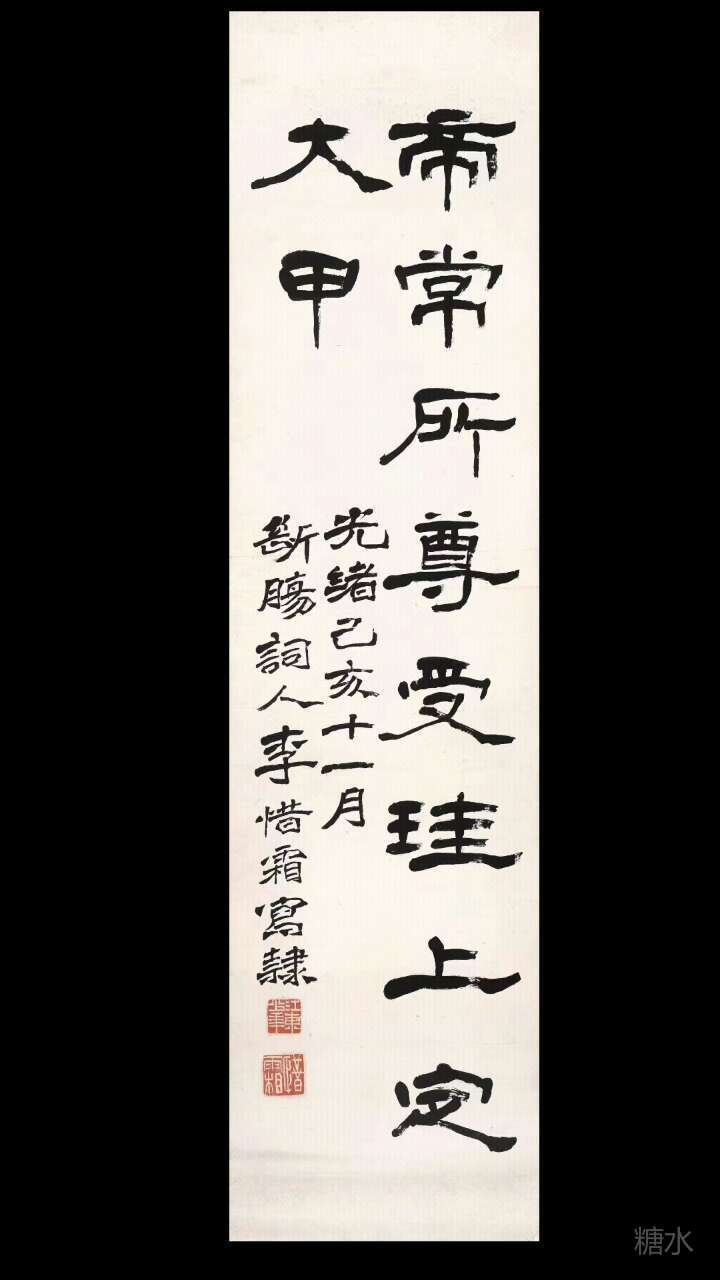 帝常所尊受珪上定
大甲
光緒己亥十一月
斷腸詞人李惜霜寫隸
糖水